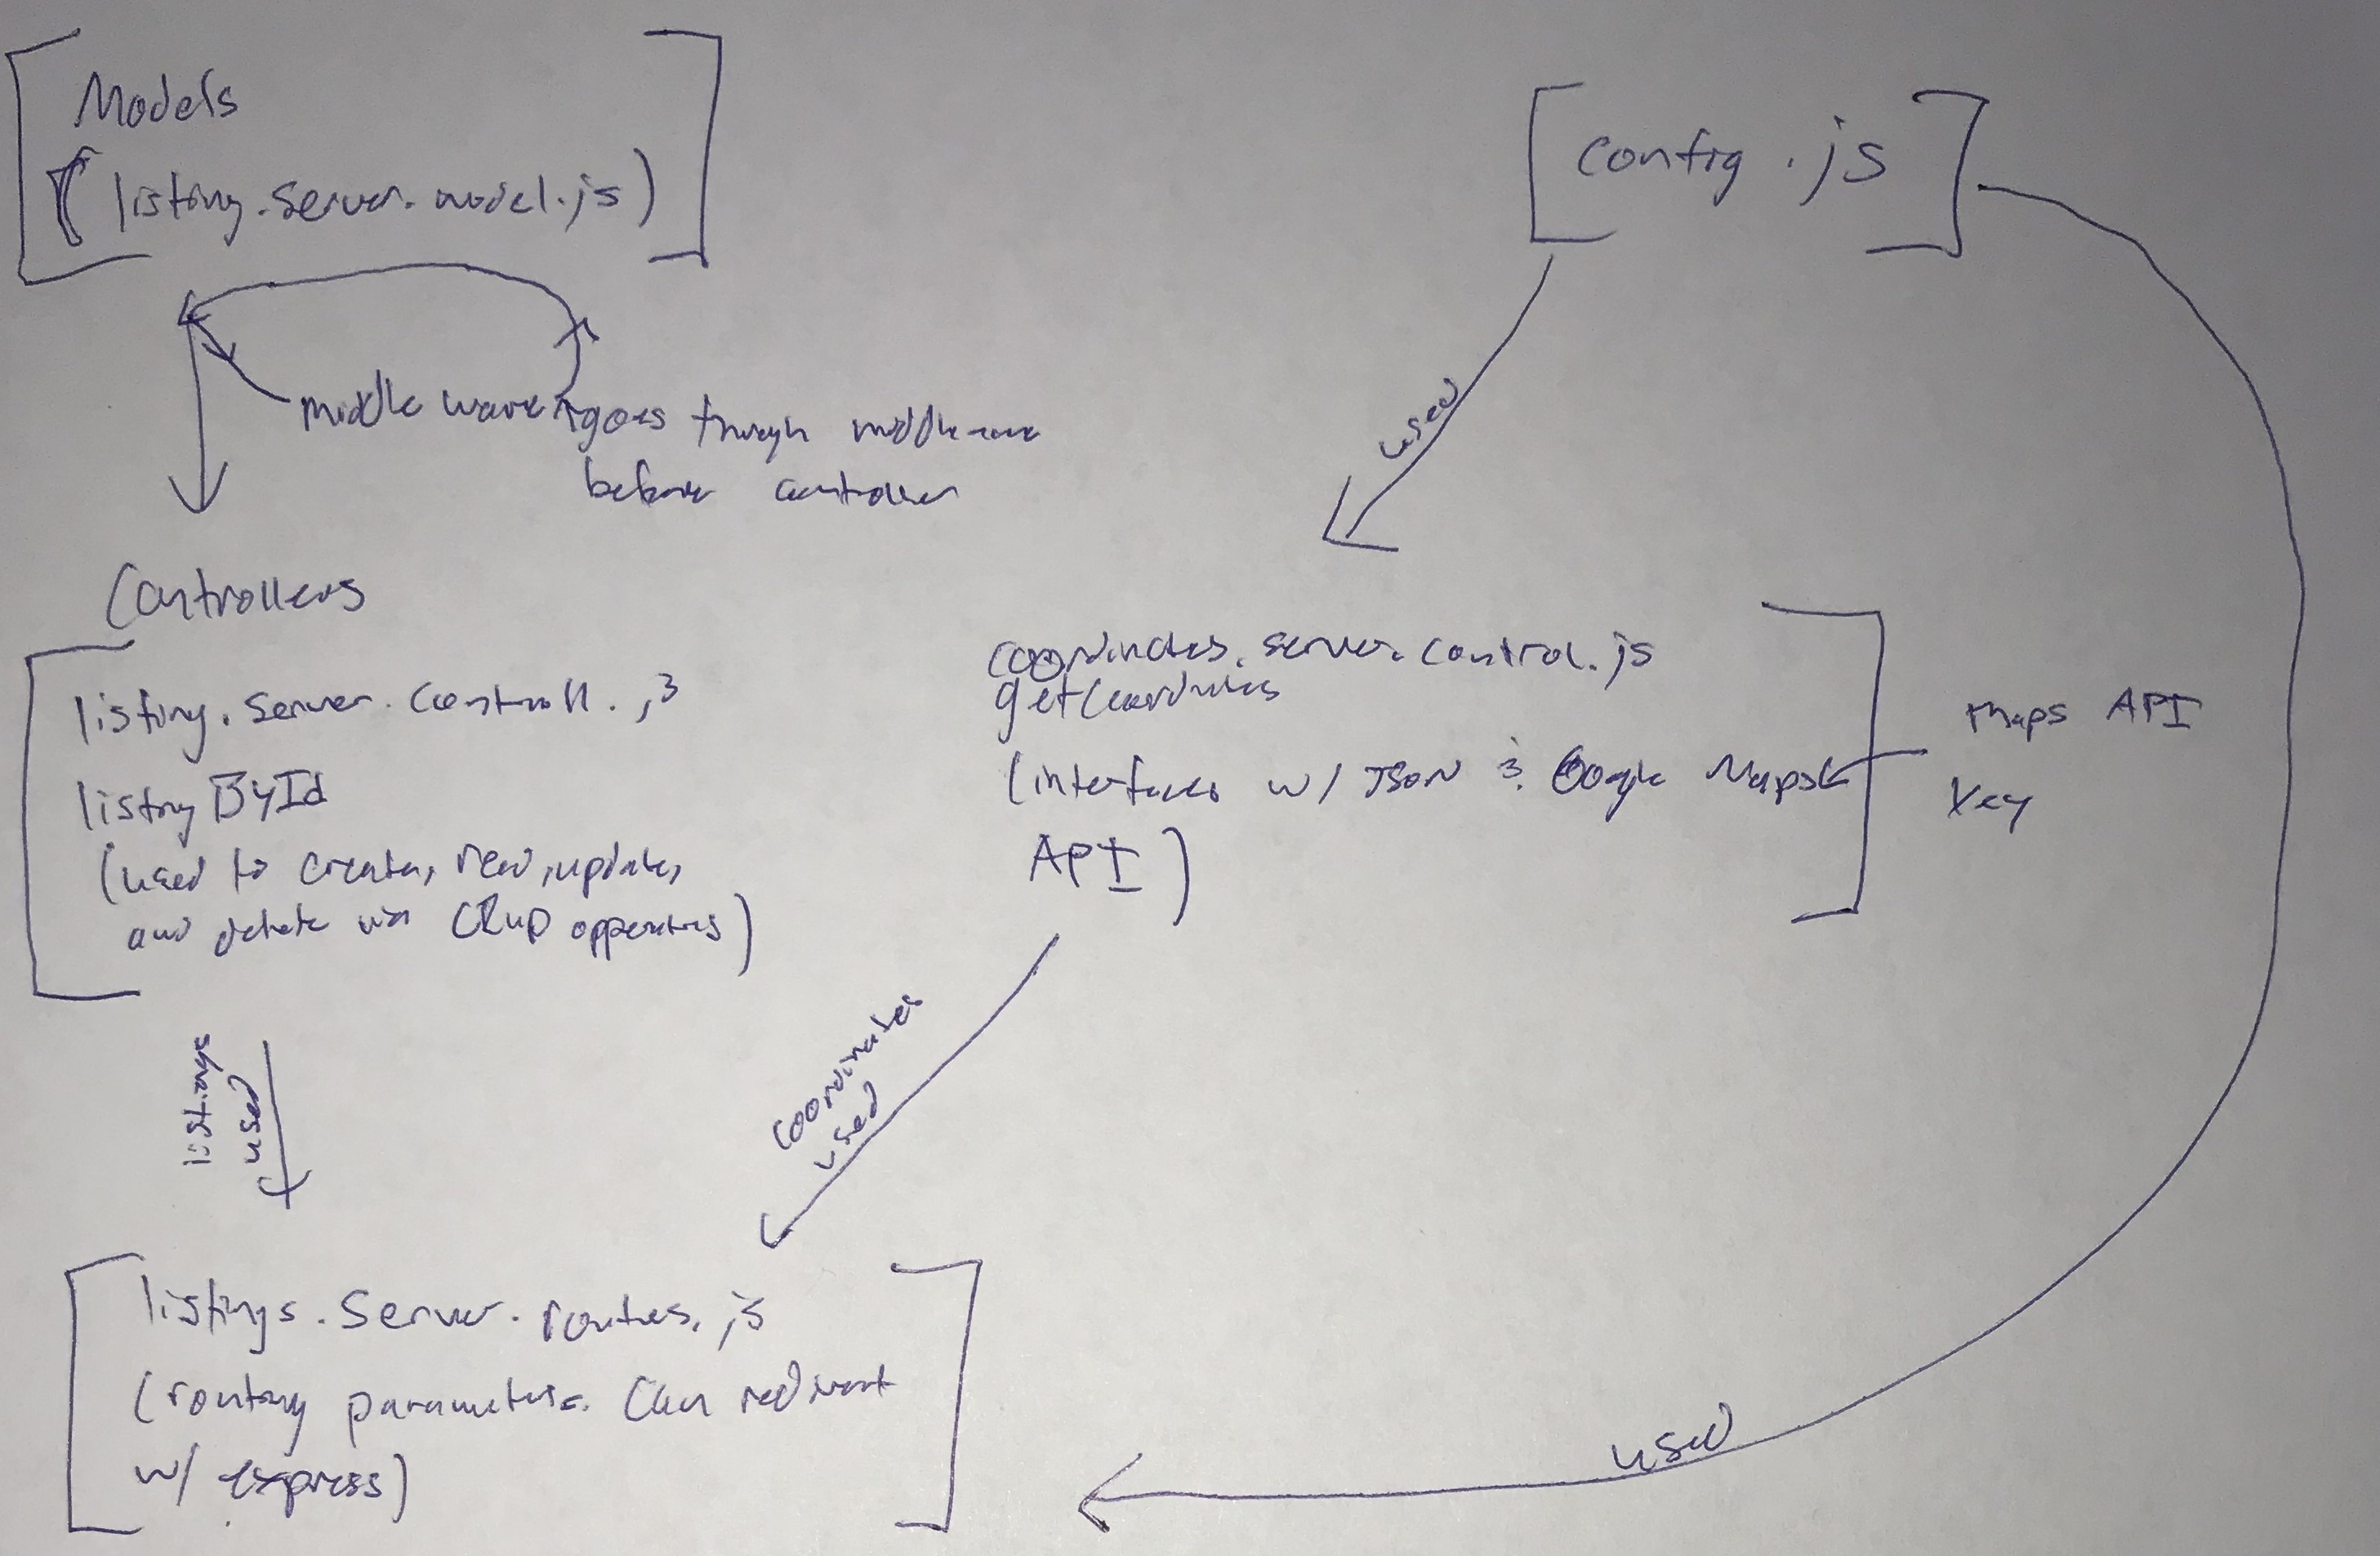 Models
(listing.server.model.js)
config.js
used
middleware goes through middleware
before controller
Controllers
listing.server.controll.js
listingById
(used to create, read, update,
and delete via CRUD
coordinates.server.control.js
getCoordinates
(interfaces w/ JSON & Google Maps
API)
Maps API
Key
listings
used
coordinates
used
listings.server.routes.js
(routing parameters. Can redirect
w/ express)
used